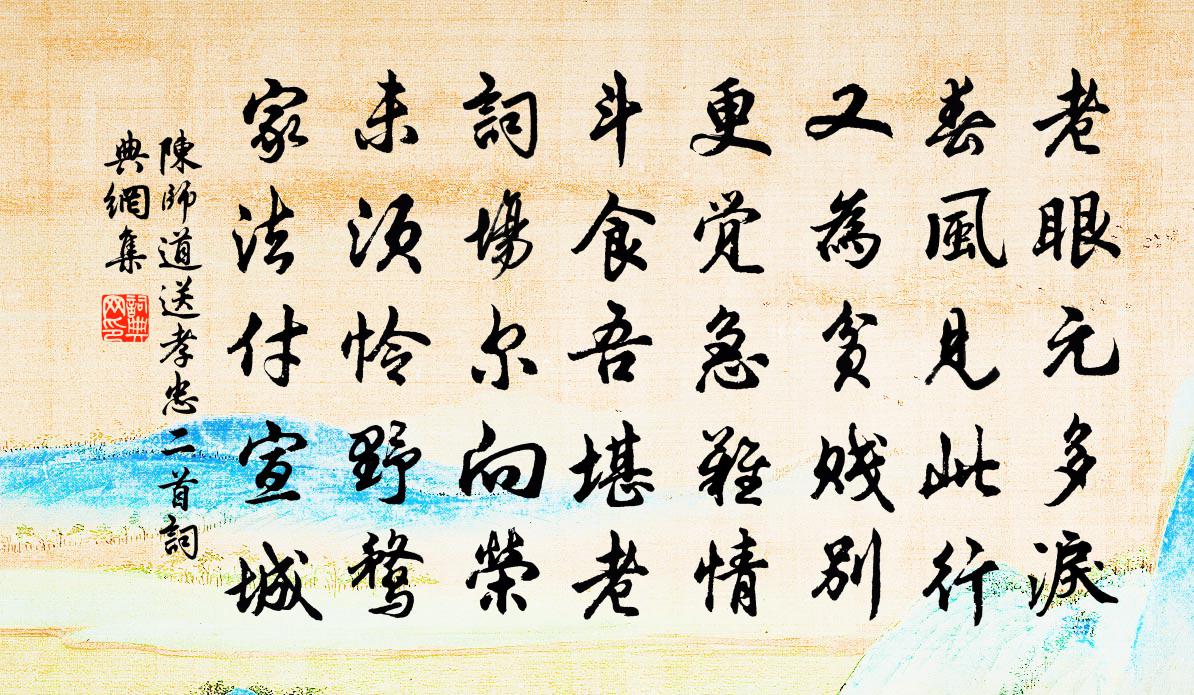 老眼元多淚
春風見此行
又為貧賤別
更觉急難情
斗食吾堪老
詞場尔向榮
未須怜野鶩
家法付宣城
陳師道送孝忠二首詞
典網集
詞典
网印